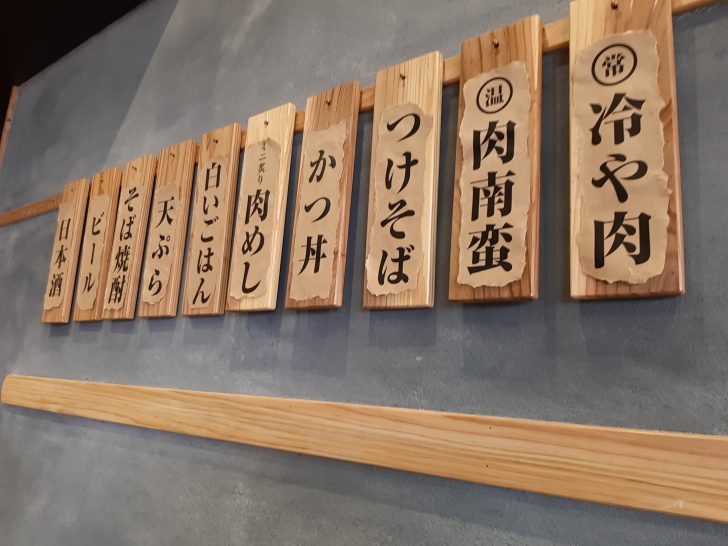 常
冷や肉
温
肉南蛮
つけそば
かつ丼
ミニ炙り
肉めし
白いごはん
天ぷら
そば焼酎
ビール
日本酒